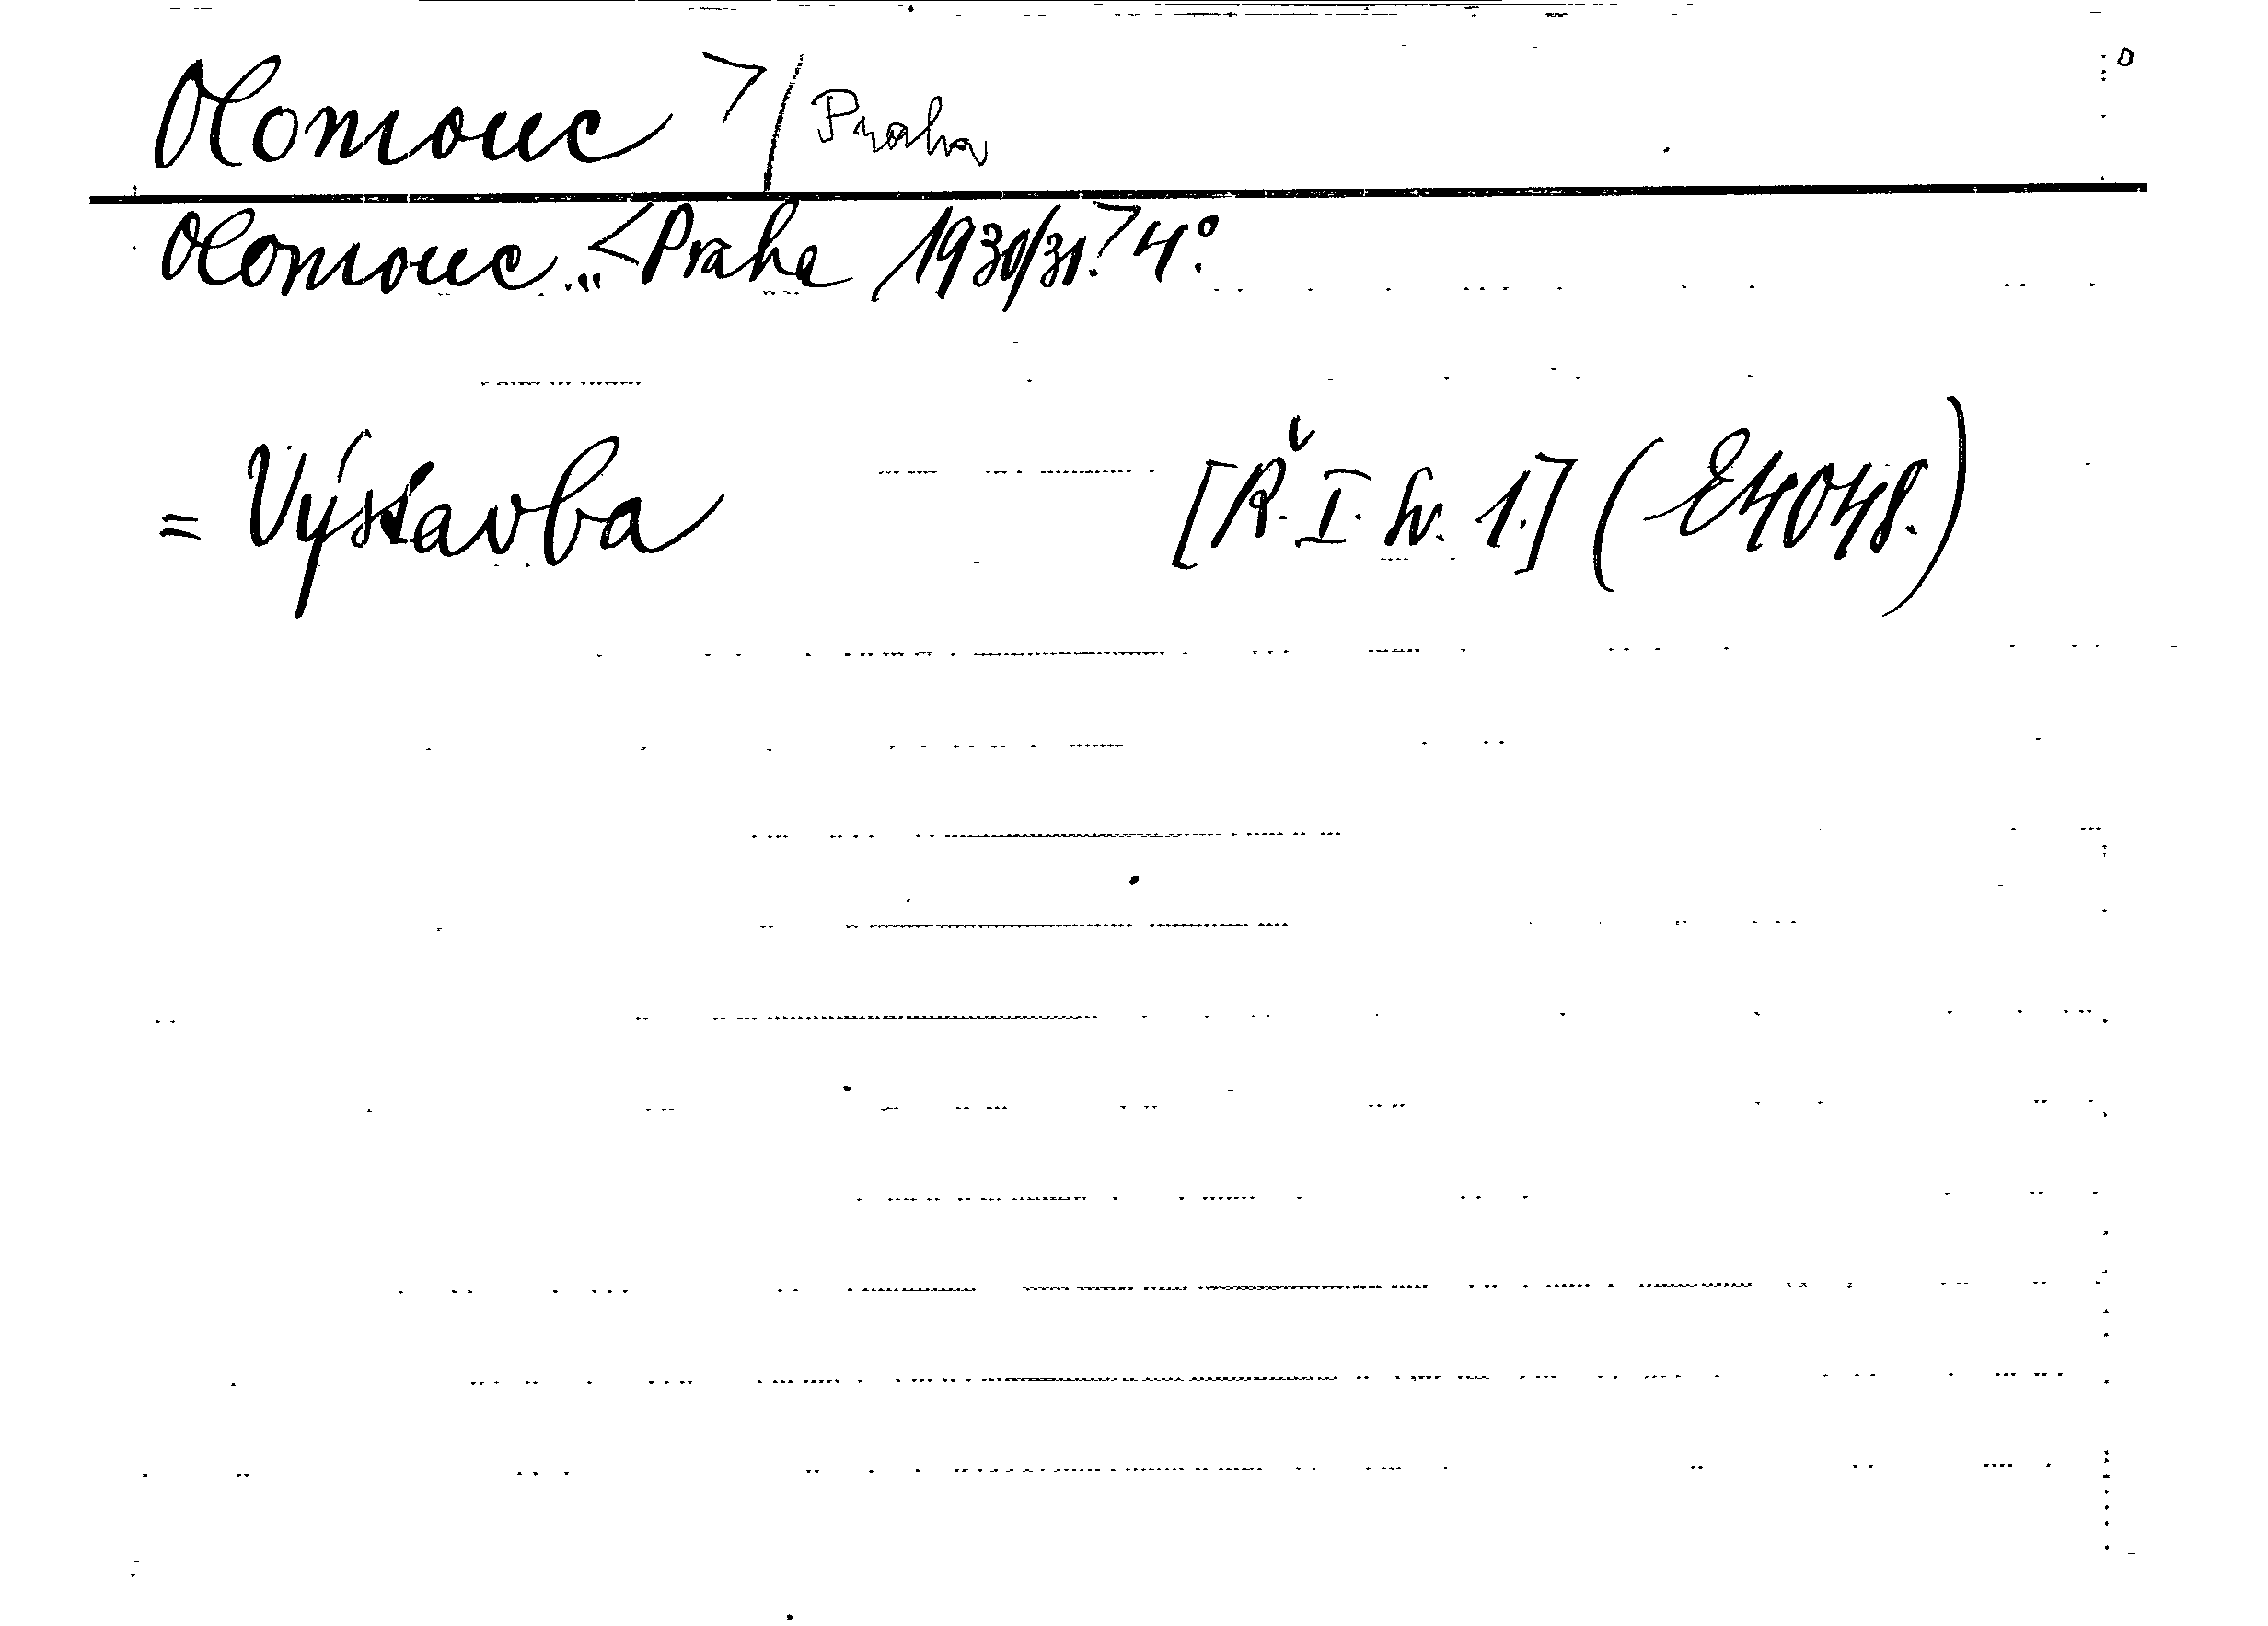 Olomouc > / Praha
Olomouc... <Praha 1930/31.> 4°.
= Výstavba [Ř. I. sv. 1.] (E4048.)